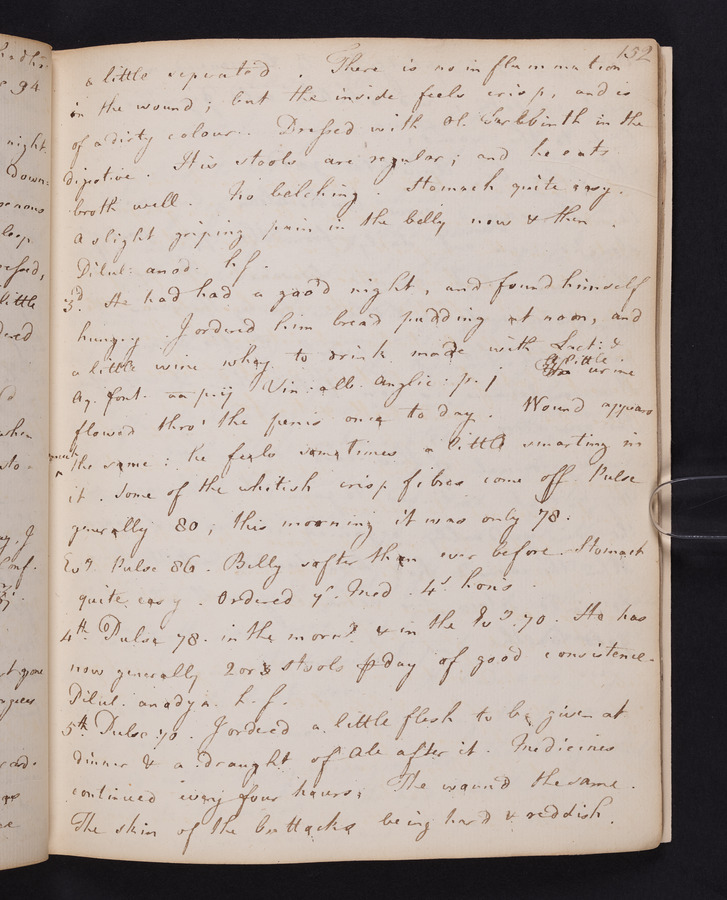 132
a little seperated. There is no inflammation
in the wound; but the inside feels crisp, and is
of a dirty colour. Dressed with Ol. Terebinth in the
digestive. His stools are regular; and he eats
broth well. No belching. Stomach quite easy.
a slight griping pain in the belly now & then.
Pilul: anod: h f.
3d. He had had a good night, and found himself
hungry. I ordered him bread pudding at noon, and
a little wine whey to drink made with Lact: &
Aq. font. aa p. ij Vin: alb. Anglic: p. j A little urine
flowed thro' the penis once to day. Wound appears
much the same: he feels sometimes a little smarting in
it. Some of the whitish crisp fibres come off. Pulse
generally 80; this morning it was only 78.
Evg. Pulse 86. Belly softer than ever before. Stomach
quite easy. Ordered ye. Med. 4s. horis.
4th. Pulse 78. in the morng. & in the Evg. 90. He has
now generally 2 or 3 stools day of good consistence.
Pilul. anodyn. h. f.
5th. Pulse 90. I ordered a little flesh to be given at
dinner & a draught of Ale after it. Medicines
continued every four hours; The wound the same.
The skin of the buttocks being hard & reddish.
night.
Down
little
when